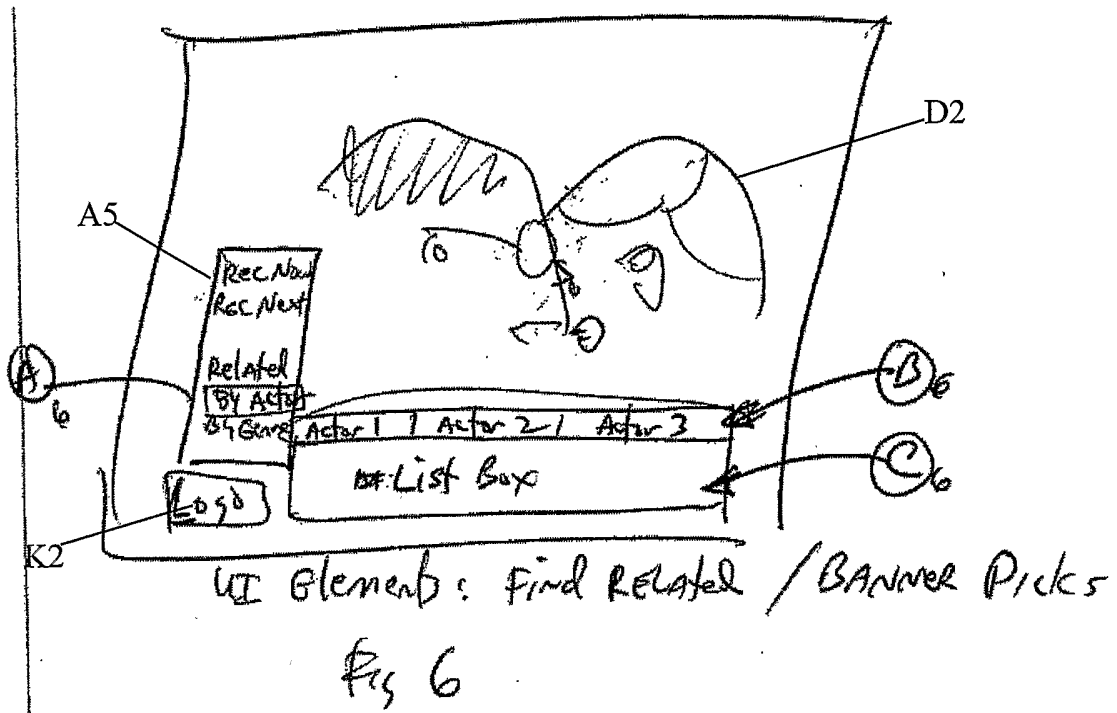 D2
A5
Rec Now
Rec Next
Related
By Actor
By Genre
Actor 1 Actor 2 Actor 3
List Box
Logo
A6
B6
C6
K2
UI Elements: Find Related / Banner Picks
Fig 6